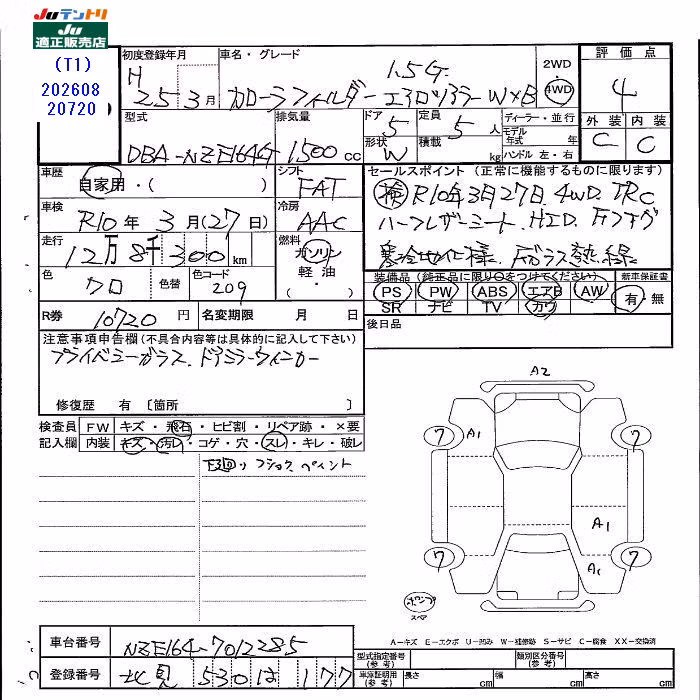 Juテントリ
Ju
適正販売店
(T1)
202608
20720
初度登録年月
H 25 3月
車名・グレード
1.5G
カローラフィールダー エアロツアラー W×B
2WD
4WD
評価点
4
外装 内装
C C
型式
DBA-NZE164G
排気量
1500cc
ドア
5
定員
5人
形状
W
積載
kg
ディーラー・並行
モデル年式 年
ハンドル 左・右
車歴
自家用・( )
シフト
FAT
セールスポイント (正常に機能するものに限ります)
検 R10年3月27日.4WD.TRC
ハーフレザーシート.HID.Fフォグ
寒冷地仕様.Fガラス熱線
車検
R10年 3月(27日)
冷房
AAC
走行
12万8千300km
燃料
ガソリン
軽・油
( ・ )
色
クロ
色替
色コード
209
装備品 (純正品に限り○をつけてください)
PS PW ABS エアB AW
SR ナビ TV カワ
新車保証書
有・無
R券 10720円
名変期限 月 日
後日品
注意事項申告欄(不具合内容等は具体的に記入して下さい)
プライバシーガラス.ドアミラーウィンカー
修復歴 有 〔箇所 〕
検査員
記入欄
FW キズ・飛石・ヒビ割・リペア跡・×要
内装 キズ・汚レ・コゲ・穴・スレ・キレ・破レ
下廻りフショク.ペイント
A2
7 A1 7
A1
7 A1 7
ポンプ
スペア
A-キズ E-エクボ U-凹み W-補修跡 S-サビ C-腐食 XX-交換済
車台番号 NZE164-7012285
登録番号 北見 530 は 177
型式指定番号(参考)
類別区分番号(参考)
車庫証明用(参考)
長さ cm
幅 cm
高さ cm